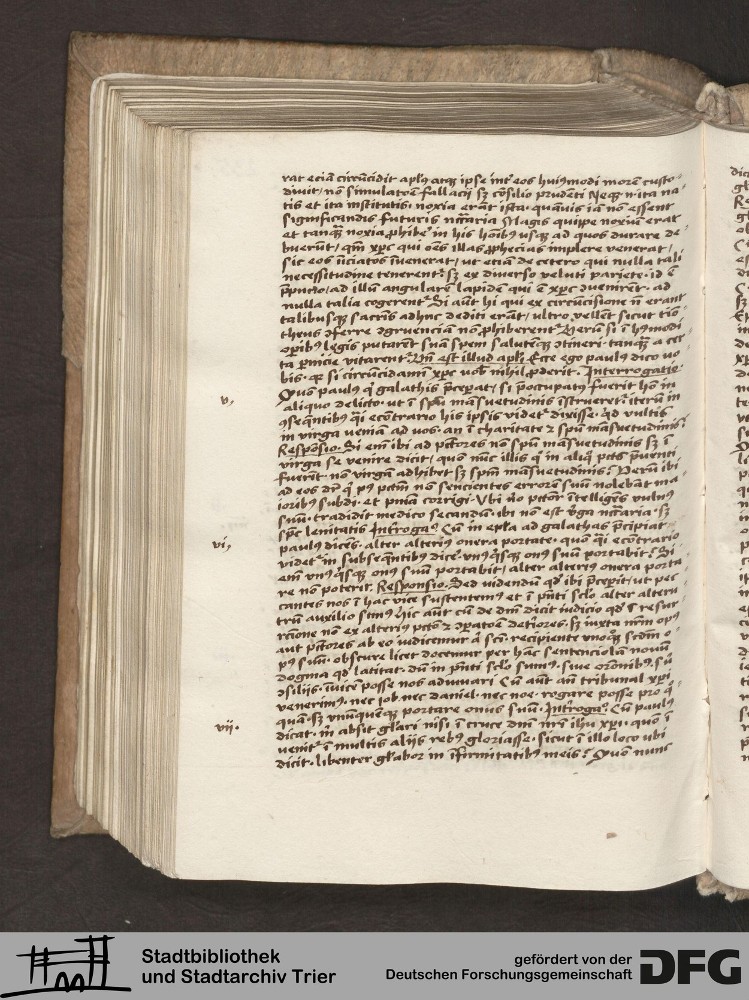 rat eciā circūcidit aplꝰ atqꝫ ipse int̄ eos huiꝰmodi morē custo-
diuit, nō simulatōe fallaci sꝫ cōsilio prudēti Neqꝫ n̄ ita na-
tis et ita institutis, noxia erāt ista, quāuis iā nō essent
significandis futuris nc̄caria Magis quippe noxiū erat
et tanqꝫ noxia ꝓhibē in his hoībꝰ usqꝫ ad quos durare de-
buerūt, qm̄ xp̄c qui oēs illas ꝓphecias implere venerat,
sic eos iniciatos īuenerat, ut etiā de cetero qui nulla tali
necessitudine tenerent sꝫ ex diuerso veluti pariete, id ē
p̄pucio, ad illū angularē lapidē qui ē xp̄c ꝯuenirēt, ad
nulla talia cogerent Si aūt hi qui ex circūcisione n̄ erant
talibusqꝫ sacris adhuc dediti erāt, ultro vellēt sicut tīo-
theus ꝯferre ꝯgruenciā nō ꝓhiberent Verū si ī hꝰmodi
oꝑibꝰ legis putarēt suā spem salutēqꝫ ꝯtineri, tanqꝫ a cer-
ta ꝑnicie vitarent Vn̄ est illud apli, Ecce ego paulus dico vo-
bis, qꝫ si circūcidamī xp̄c vob nihil ꝓderit. Interrogatio
v, Quō paulꝰ qi galathis p̄cepat, si p̄occupatꝰ fuerit hō in
aliquo delicto, ut ī spū māsuetudinis īstrueret iterū in
ꝯseqntibꝰ qi ecōtrario his ipsis videt dixisse, qd vultis
in virga veniā ad vos, an ī charitate ⁊ spū māsuetudinis?
Responsio. Si em̄ ibi ad pctōres nō spū māsuetudinis sꝫ ī
virga se venire dicit, quō nūc illis qi in aliqꝫ pctis p̄uenti
fuerīt, nō virgā adhibet sꝫ spm̄ māsuetudinis? Verū ibi
ad eos dr̄ qi pꝰ pctm̄ nō sencientes errorē suū nolebāt ma-
ioribꝰ subdi, et pn̄iā corrigi, Vbi v̄o pctōr ītelligēs vulnꝰ
suū, tradidit medico secandū, ibi nō est v̄ga nc̄caria, sꝫ
spc lenitatis Intrroga° Cū in epl̄a ad galathas p̄cipiat
vi, paulꝰ dicēs, alter alteriꝰ onera portate, quō qi ecōtrario
videt in subseqntibꝰ dicē, vnꝰqꝫsqꝫ onꝰ suū portabit? Si
em̄ vnꝰqꝫsqꝫ onꝰ suū portabit, alter alteriꝰ onera porta-
re nō poterit. Responsio. Sed videndū qd ibi p̄cepit, ut pec-
cantes nos ī hac vice sustentemꝰ et ī pn̄ti sclo alter alteri-
trū auxilio simꝰ, hic aūt cū de dm̄ dicit iudicio qd ī resur-
rcione nō ex alteriꝰ pctō ⁊ ꝯꝑatōe detiores, sꝫ iuxta nr̄m opꝰ
aut pctōres ab eo iudicemur ā sci, recipiente vnoqꝫ scdm o-
pꝰ suū, obscure licet docemur per hāc sentenciolā nouū
dogma qd latitat, dū in pn̄ti sclo sumꝰ, siue orōnibꝰ, siue
ꝯsiliis, īuicē posse nos adiuuari Cū aūt an̄ tribunal xpi
venerimꝰ, nec iob, nec daniel, nec noe, rogare posse pro qo-
quā, sꝫ vnūquēqꝫ portare onus suū. Intrroga° Cū paulꝰ
vij. dicat, m̄ absit gl̄ari nisi ī cruce dnī nr̄i ihū xpi, quō ī-
venit ī multis aliis rebꝰ gloriasse, sicut ī illo loco ubi
dicit, libenter gl̄abor in īfirmitatibꝰ meis? Quō nunc
Stadtbibliothek
und Stadtarchiv Trier
gefördert von der
Deutschen Forschungsgemeinschaft
DFG